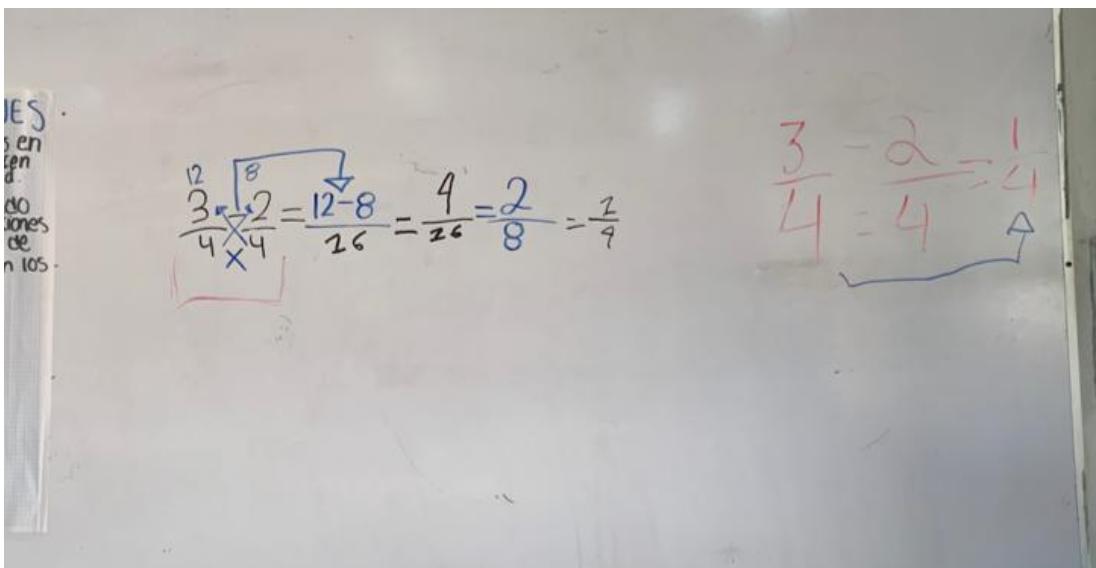 ES
s en
en
d.
do
iones
de
n los.
12 8
3/4 - 2/4 = 12-8/16 = 4/16 = 2/8 = 1/4
x
3/4 - 2/4 = 1/4
=